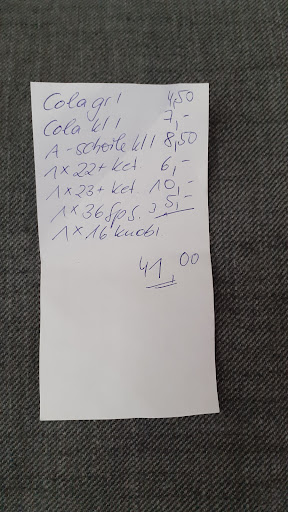 Cola gr 1 4,50
Cola kl 1 7,-
A-schorle kl 1 8,50
1 x 22 + Ket 6,-
1 x 23 + Ket. 10,-
1 x 36 Sps. 5,-
1 x 16 knobi
41,00